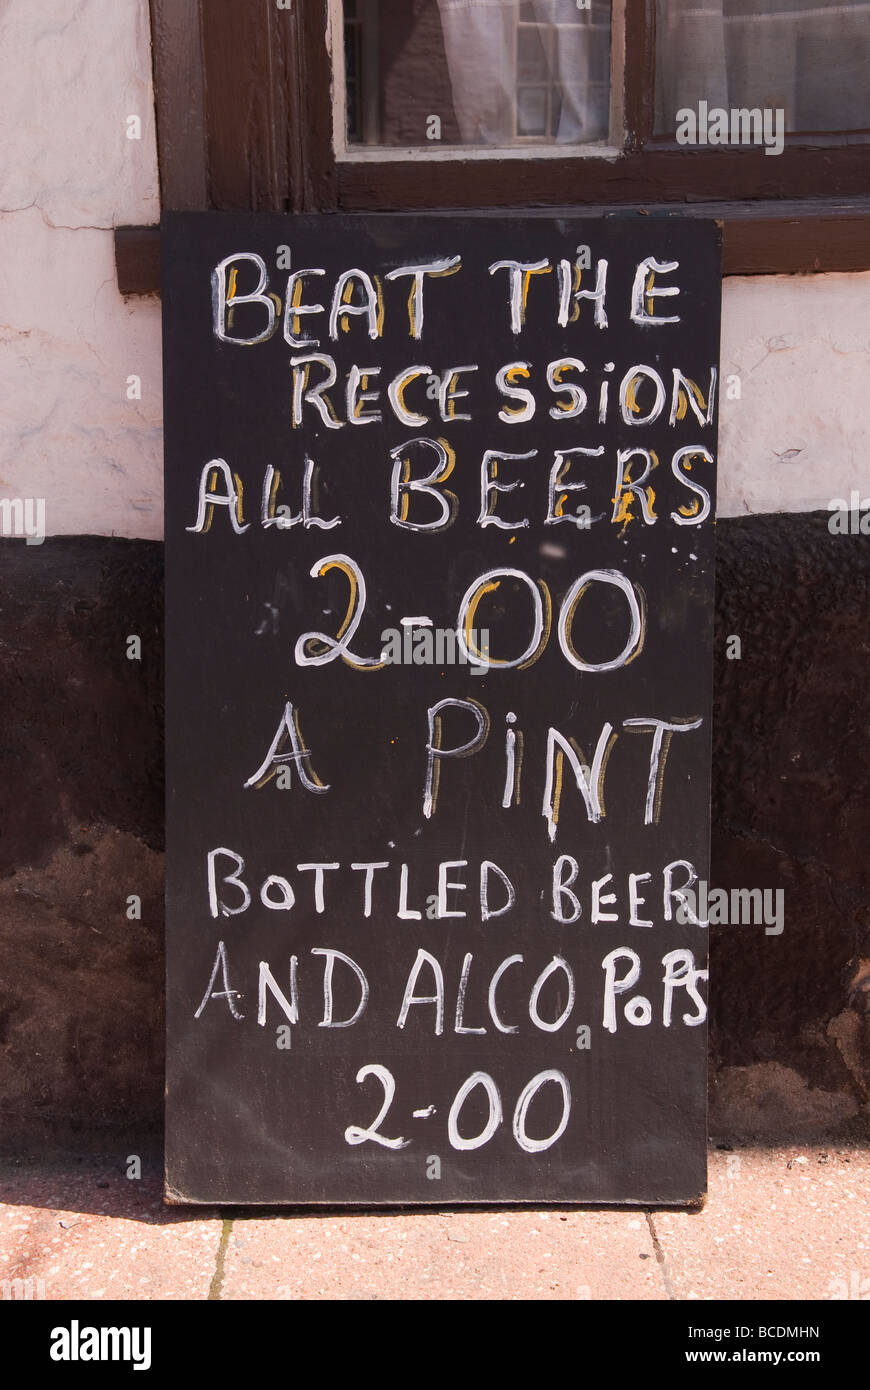 BEAT THE
RECESSiON
ALL BEERS
2-00
A PiNT
BOTTLED BEER
AND ALCO POPS
2-00
alamy
Image ID: BCDMHN
www.alamy.com